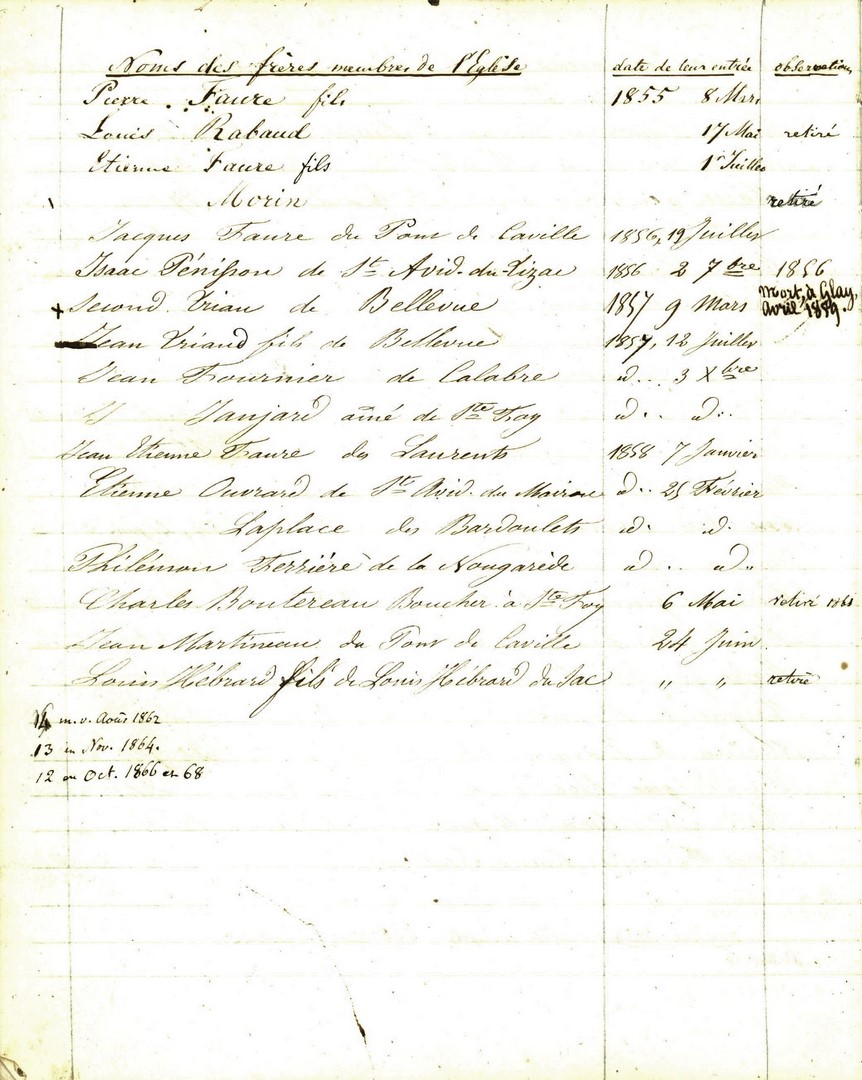 Noms des frères membres de l'Eglise date de leur entrée observations
Pierre Faure fils 1855 8 Mars
Louis Rabaud 17 Mai retiré
Etienne Faure fils 1r Juillet
Morin retiré
Jacques Faure du Pont de Caville 1856, 19 Juillet
Isaac Pénisson de Ste Avid-du- 1856 2 7bre 1856
+ Second Briau de Bellevue 1857 9 Mars Mort à Glay, Avril 1859.
Jean Briaud fils de Bellevue 1857, 12 Juillet
Jean Fournier de Calabre d.. 3 Xbre
Janjard aîné de Ste Foy d.. d..
Jean Etienne Faure des Laurents 1858 7 Janvier
Etienne Ouvrard de Ste Avid du d.. 25 Février
Laplace des Bardoulets d. d.
Philémon Ferrière de la Nougarède d.. d..
Charles Boutereau Boucher à Ste Foy 6 Mai retiré
Jean Martineau du Pont de Caville 24 Juin
Louis Hébrard fils de Louis Hébrard du Sac " " retiré
14 m. v. Août 1862
13 en Nov. 1864.
12 en Oct. 1866 et 68